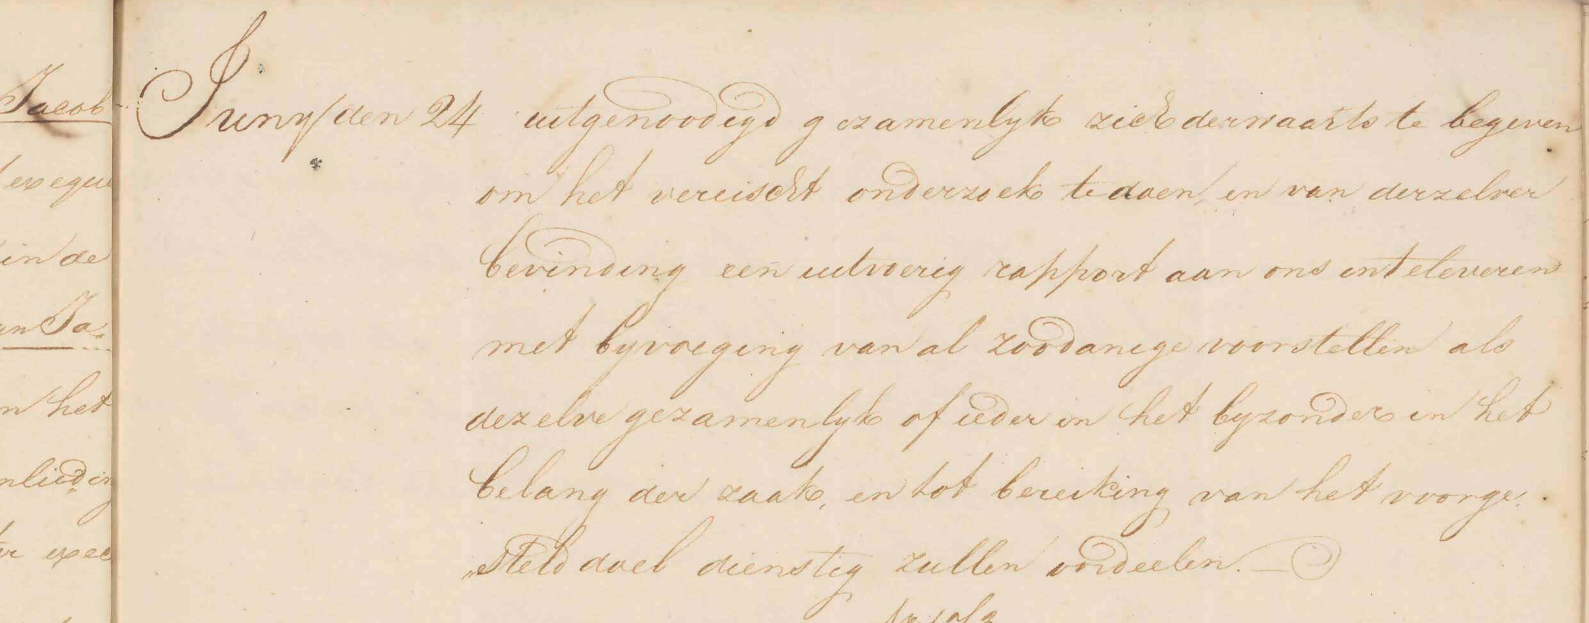 Jacob
Juny/den 24 uitgenoodigd gezamenlyk zich derwaarts te begeven
om het vereischt onderzoek te doen, en van derzelver
bevinding een uitvoerig rapport aan ons inteleveren
met byvoeging van al zoodanige voorstellen als
dezelve gezamenlyk of ieder in het byzonder in het
belang der zaak, en tot bereiking van het voorge„
„steld doel dienstig zullen oordeelen.
exequ
in de
an Ja„
n het
nlieding
er exec